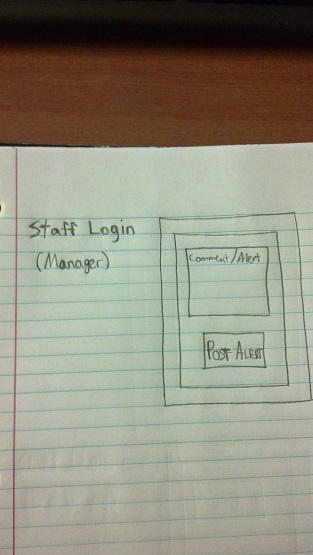 Staff Login
(Manager)
Comment/Alert
Post Alert